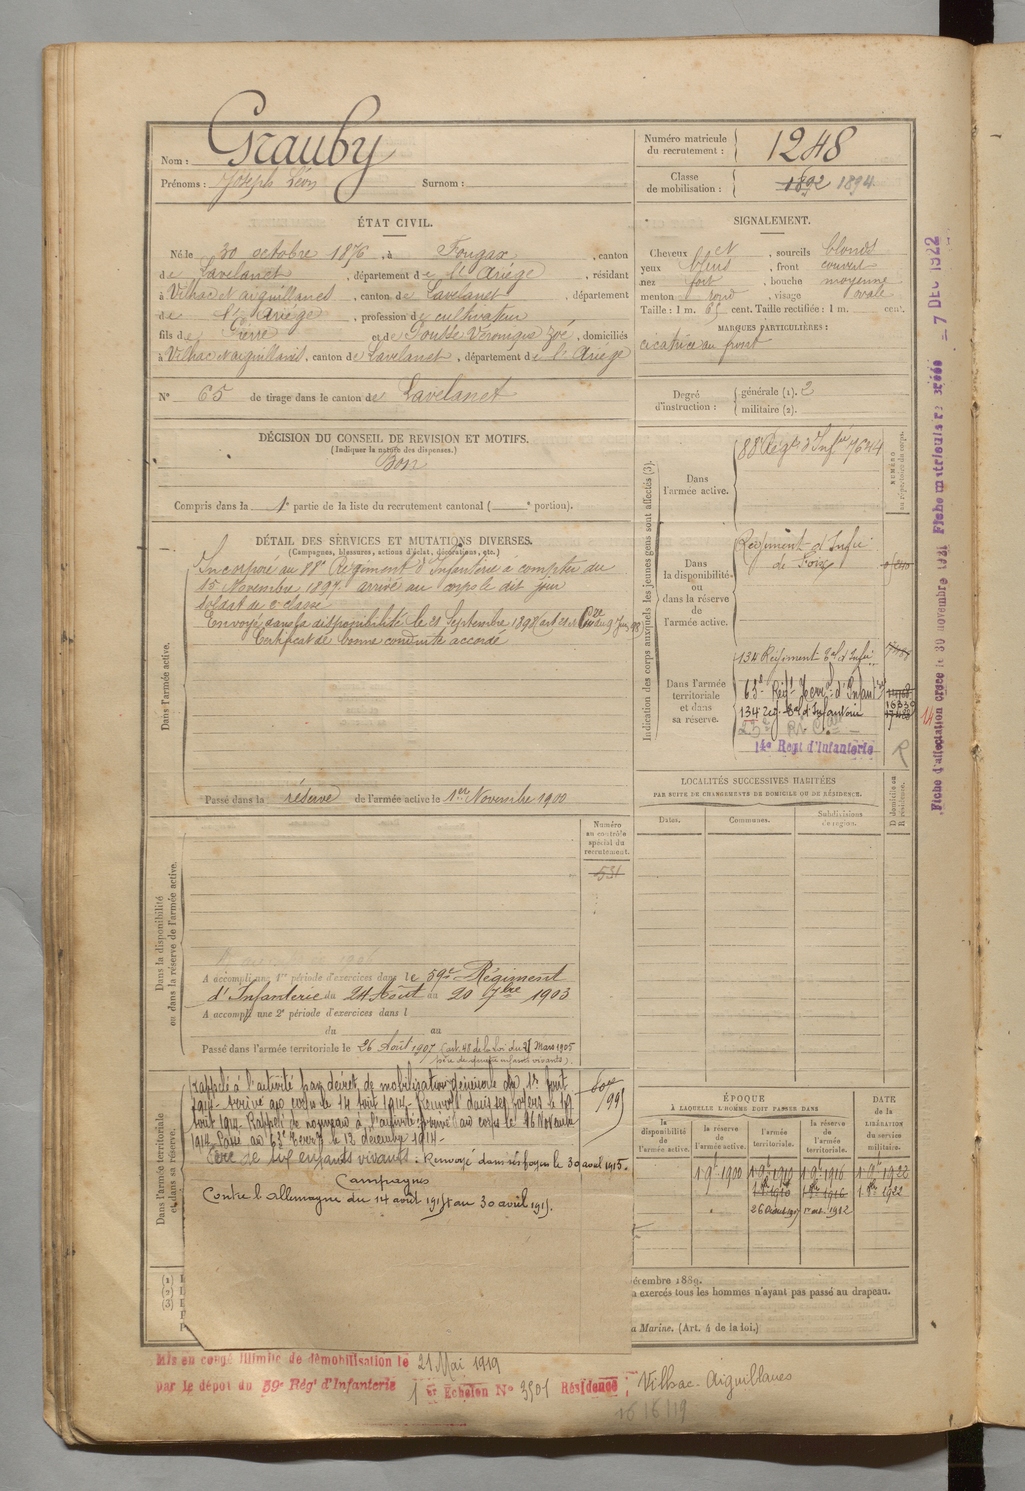 Nom : Grauby
Prénoms : Joseph Léon Surnom :
Numéro matricule du recrutement : 1248
Classe de mobilisation : 1892 1894
ÉTAT CIVIL.
Né le 30 octobre 1876, à Fougax, canton
de Lavelanet, département de l'Ariège, résidant
à Villhac et aiguillanes, canton de Lavelanet, département
de l'Ariège, profession de cultivateur
fils de Pierre et de Pousse Véronique Zoé, domiciliés
à Villhac et aiguillanes, canton de Lavelanet, département de l'Ariège
N° 65 de tirage dans le canton de Lavelanet
SIGNALEMENT.
Cheveux et, sourcils blonds
yeux bleus, front couvert
nez fort, bouche moyenne
menton rond, visage ovale
Taille : 1 m. 65 cent. Taille rectifiée : 1 m. cent.
MARQUES PARTICULIÈRES :
cicatrice au front
Degré d'instruction : générale (1). 2
militaire (2).
DÉCISION DU CONSEIL DE REVISION ET MOTIFS.
(Indiquer la nature des dispenses.)
Bon
Compris dans la 1e partie de la liste du recrutement cantonal ( e portion).
DÉTAIL DES SERVICES ET MUTATIONS DIVERSES.
(Campagnes, blessures, actions d'éclat, décorations, etc.)
Dans l'armée active.
Incorporé au 88e Régiment d'Infanterie à compter du
15 Novembre 1897 arrivé au corps le dit jour
soldat de 2e classe
Envoyé dans la disponibilité le 21 Septembre 1898
Certificat de bonne conduite accordé
Passé dans la réserve de l'armée active le 1er Novembre 1900
Indication des corps auxquels les jeunes gens sont affectés (3).
NUMÉRO au répertoire du corps.
Dans l'armée active.
88e Régt d'Infie 7644
Dans la disponibilité ou dans la réserve de l'armée active.
Régiment d'Infie
de Foix
Dans l'armée territoriale et dans sa réserve.
134 Régiment Tal d'Infie
63e Régt Terral d'Infanterie
134 reg. Tal d'Infanterie
14e Regt d'Infanterie
R
LOCALITÉS SUCCESSIVES HABITÉES
PAR SUITE DE CHANGEMENTS DE DOMICILE OU DE RÉSIDENCE.
Dates. Communes. Subdivisions de région. D domicile ou R résidence.
Dans la disponibilité ou dans la réserve de l'armée active.
Numéro au contrôle spécial du recrutement.
531
A accompli une 1re période d'exercices dans le 59e Régiment
d'Infanterie du 24 Août au 20 7bre 1903
A accompli une 2e période d'exercices dans l
du au
Passé dans l'armée territoriale le 26 Août 1907 (art. 48 de la Loi du 21 Mars 1905
père de quatre enfants vivants).
Dans l'armée territoriale et dans sa réserve.
Rappelé à l'activité par décret de mobilisation générale du 1er août
1914. Arrivé au corps le 14 août 1914. Renvoyé dans ses foyers le 19
août 1914. Rappelé de nouveau à l'activité arrivé au corps le 16 Novembre
1914. Passé au 63e Terral le 12 décembre 1914.
Père de six enfants vivants. Renvoyé dans ses foyers le 30 avril 1915.
Campagnes
Contre l'Allemagne du 14 août 1914 au 30 avril 1915.
ÉPOQUE
À LAQUELLE L'HOMME DOIT PASSER DANS
la disponibilité de l'armée active. la réserve de l'armée active. l'armée territoriale. la réserve de l'armée territoriale.
DATE de la LIBÉRATION du service militaire.
1. 9bre 1900 1. 9bre 1910 1. 9bre 1916 1. 9bre 1922
1. 8bre 1910 1. 8bre 1916 1. 8bre 1922
26 août 1907 1er oct. 1912
(1)
(2)
(3)
décembre 1889.
a exercés tous les hommes n'ayant pas passé au drapeau.
a Marine. (Art. 4 de la loi.)
Mis en congé illimité de démobilisation le 21 Mai 1919
par le dépôt du 59e Régt d'Infanterie 1er Echelon N° 3501 Résidence : Villhac-Aiguillanes
16/6/19
Fiche d'affectation créée le 30 novembre 1921 Fiche matricule re créée — 7 DEC 1922
14